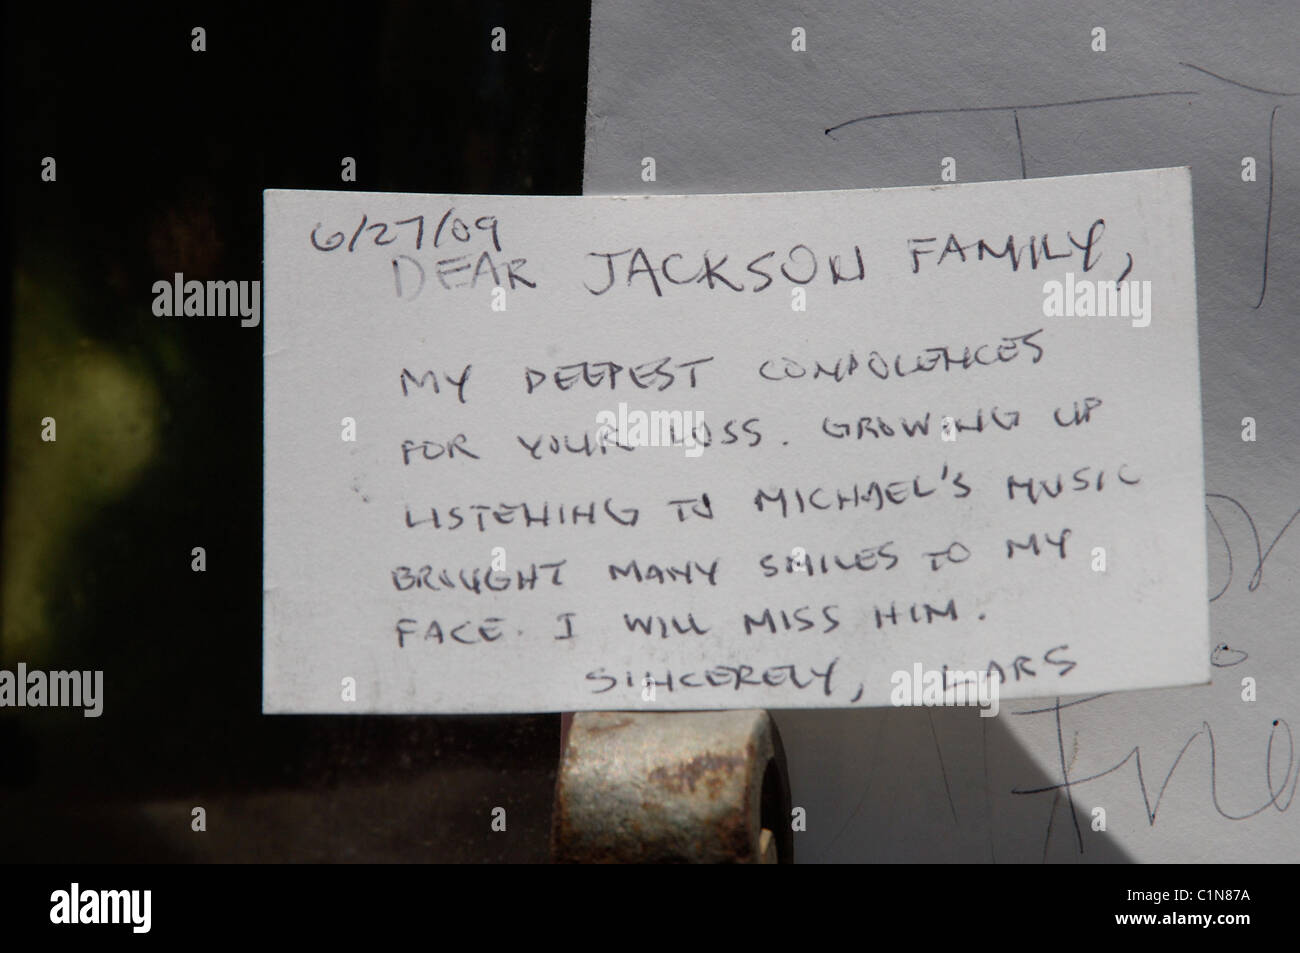 6/27/09
DEAR JACKSON FAMILY,
MY DEEPEST CONDOLENCES
FOR YOUR LOSS. GROWING UP
LISTENING TO MICHAEL'S MUSIC
BROUGHT MANY SMILES TO MY
FACE. I WILL MISS HIM.
SINCERELY, LARS
a
alamy
alamy
Image ID: C1N87A
www.alamy.com